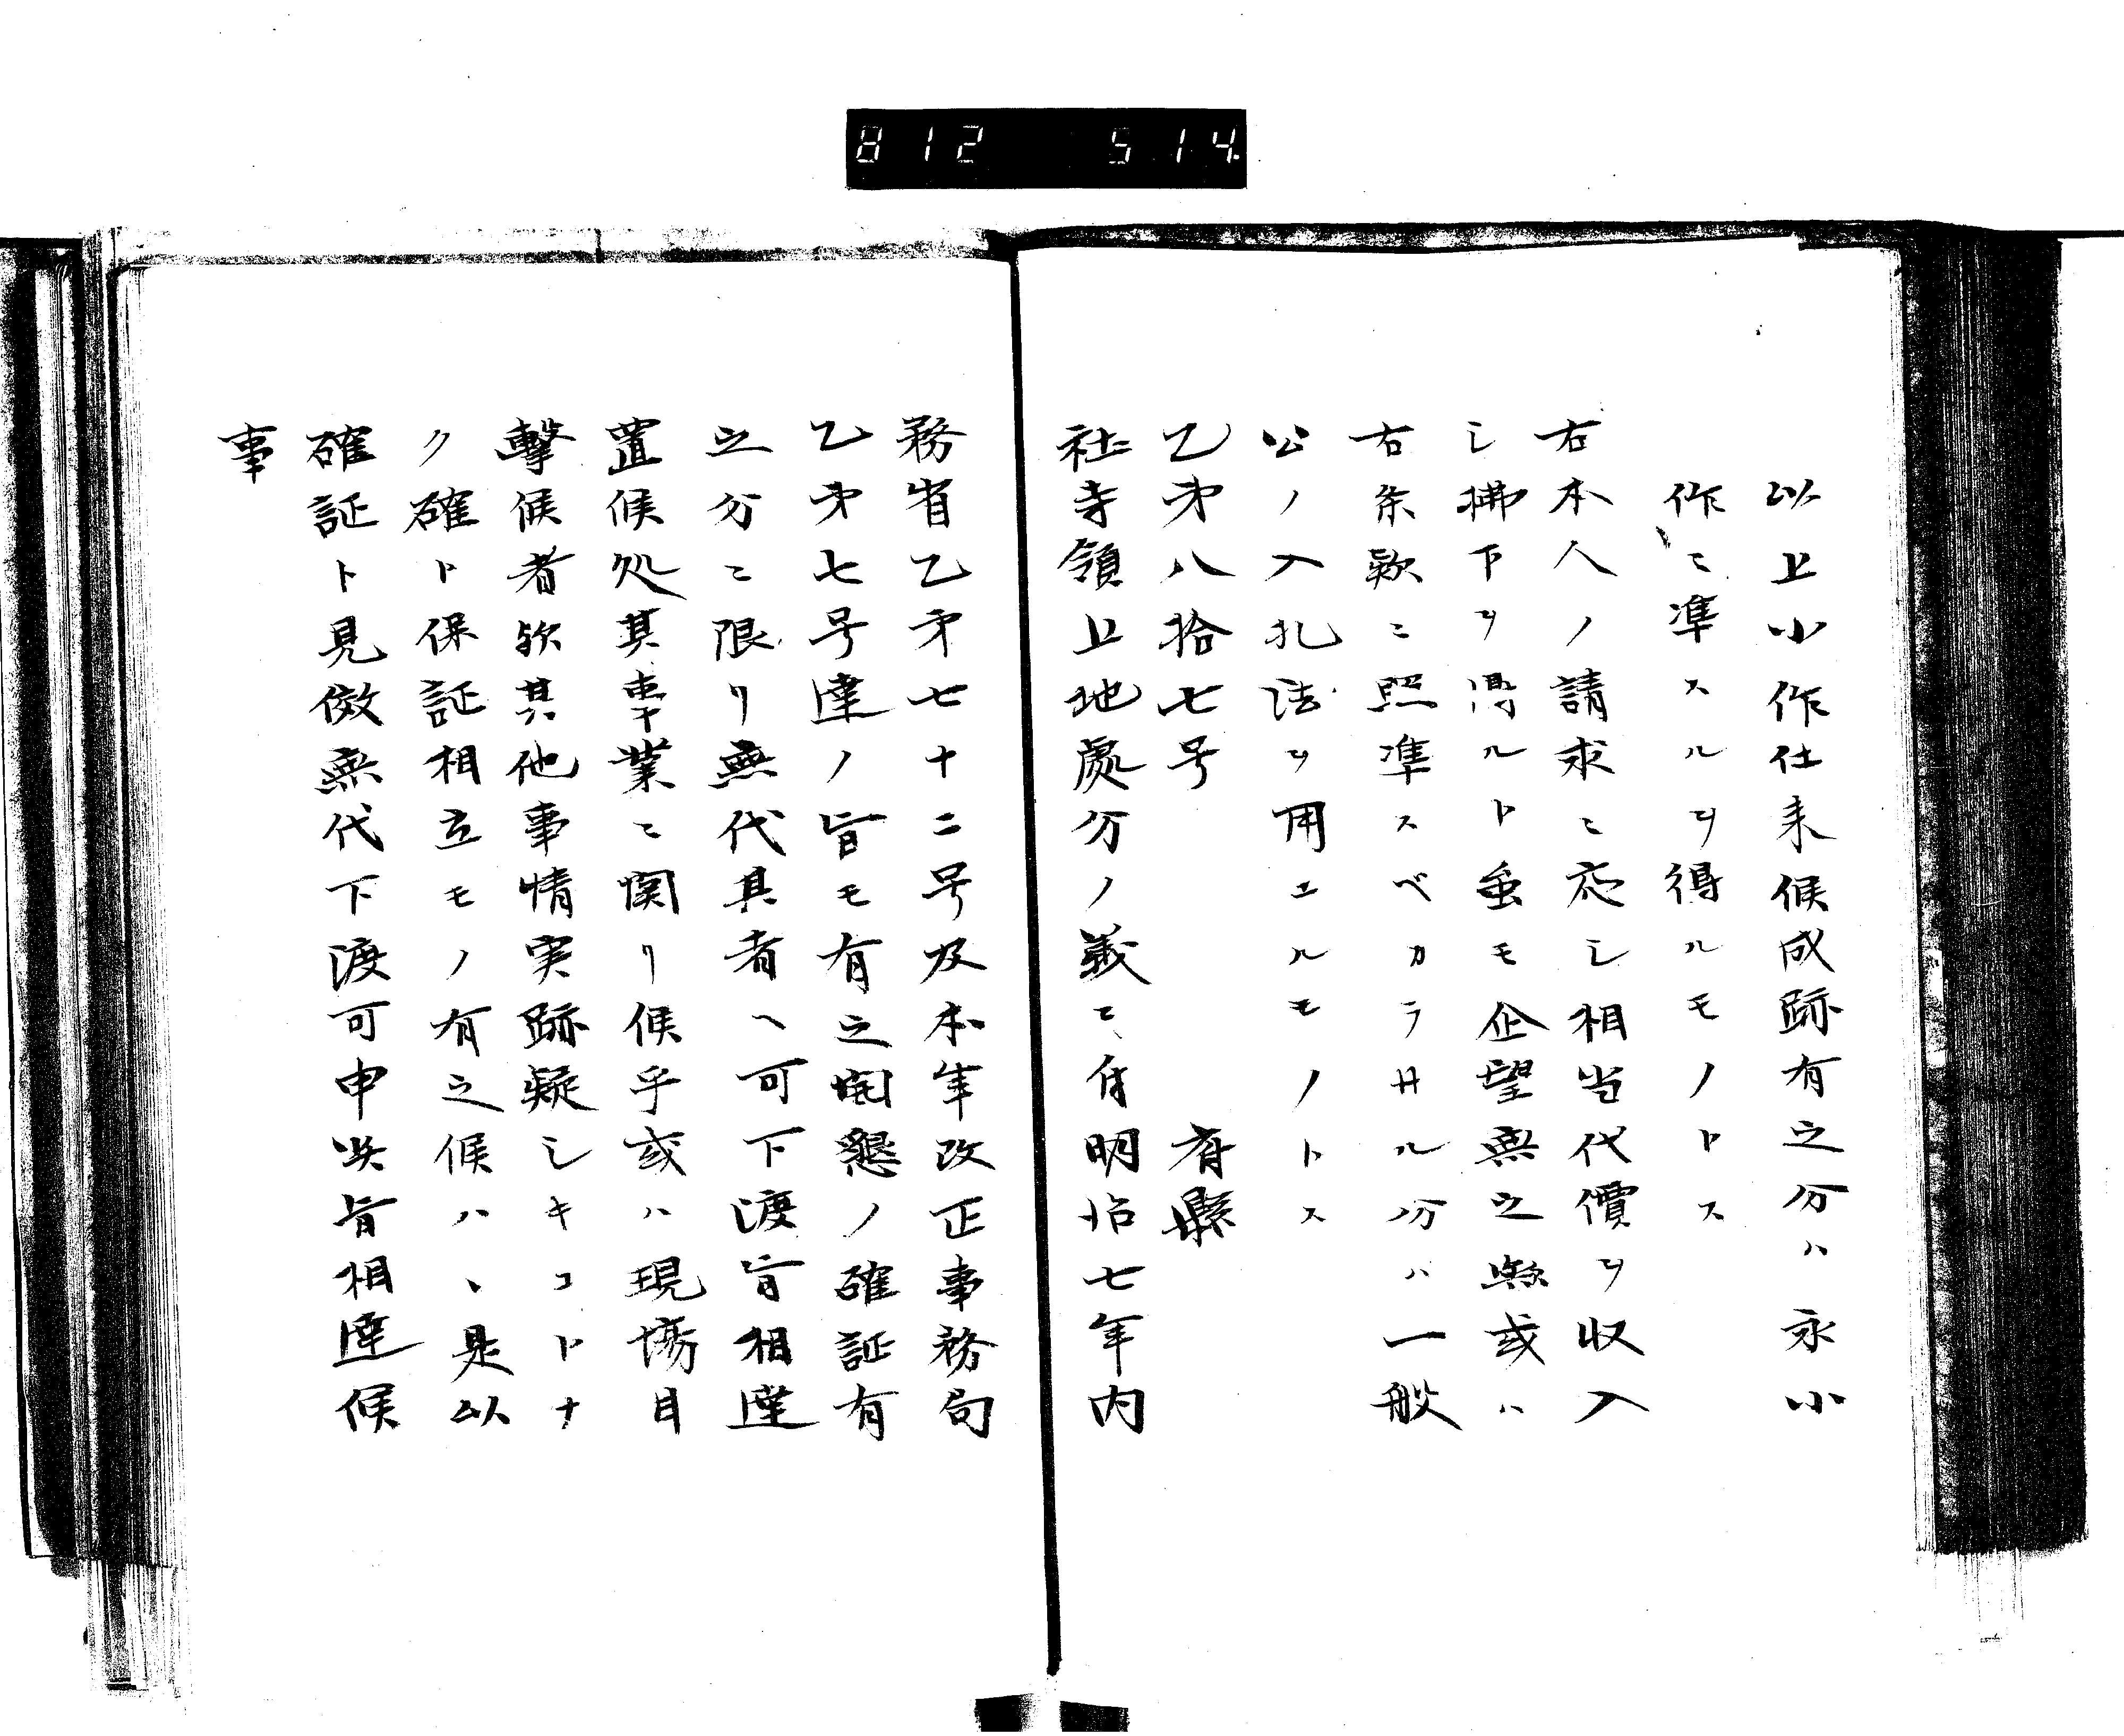 812 514
以上小作仕来候成跡有之分ハ永小
作ニ準スルヲ得ルモノトス
右本人ノ請求ニ応シ相当代價ヲ収入
シ拂下ヲ得ルト虽モ企望無之歟或ハ
右条款ニ照準スベカラサル分ハ一般
公ノ入札法ヲ用エルモノトス
乙第八拾七号 府縣
社寺領上地處分ノ義ニ付明治七年内
務省乙第七十二号及本年改正事務局
乙第七号達ノ旨モ有之開懇ノ確証有
之分ニ限リ無代其者ヘ可下渡旨相達
置候処其事業ニ関リ候乎或ハ現場目
擊候者歟其他事情実跡疑シキコトナ
ク確ト保証相立モノ有之候ハヽ是以
確証ト見做無代下渡可申此旨相達候
事